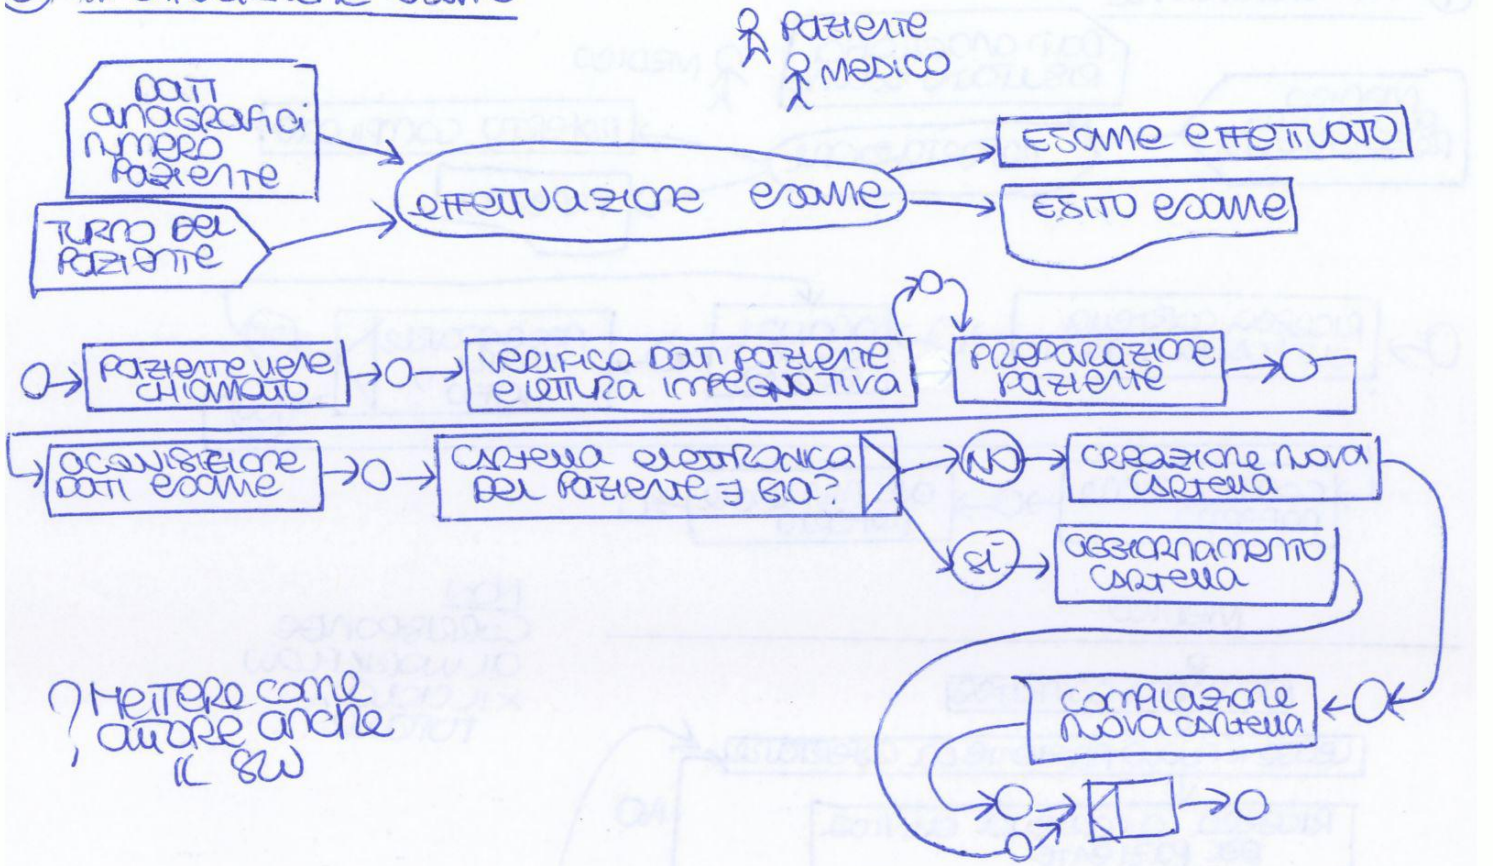 Paziente
Medico
Dati
anagrafici
numero
Paziente
Turno del
Paziente
effettuazione esame
Esame effettuato
Esito esame
Paziente viene
chiamato
Verifica dati paziente
e lettura impegnativa
Preparazione
Paziente
acquisizione
dati esame
Cartella elettronica
del paziente ∃ già?
NO
Creazione nuova
cartella
SÌ
aggiornamento
cartella
Compilazione
nuova cartella
? Mettere come
attore anche
il SW